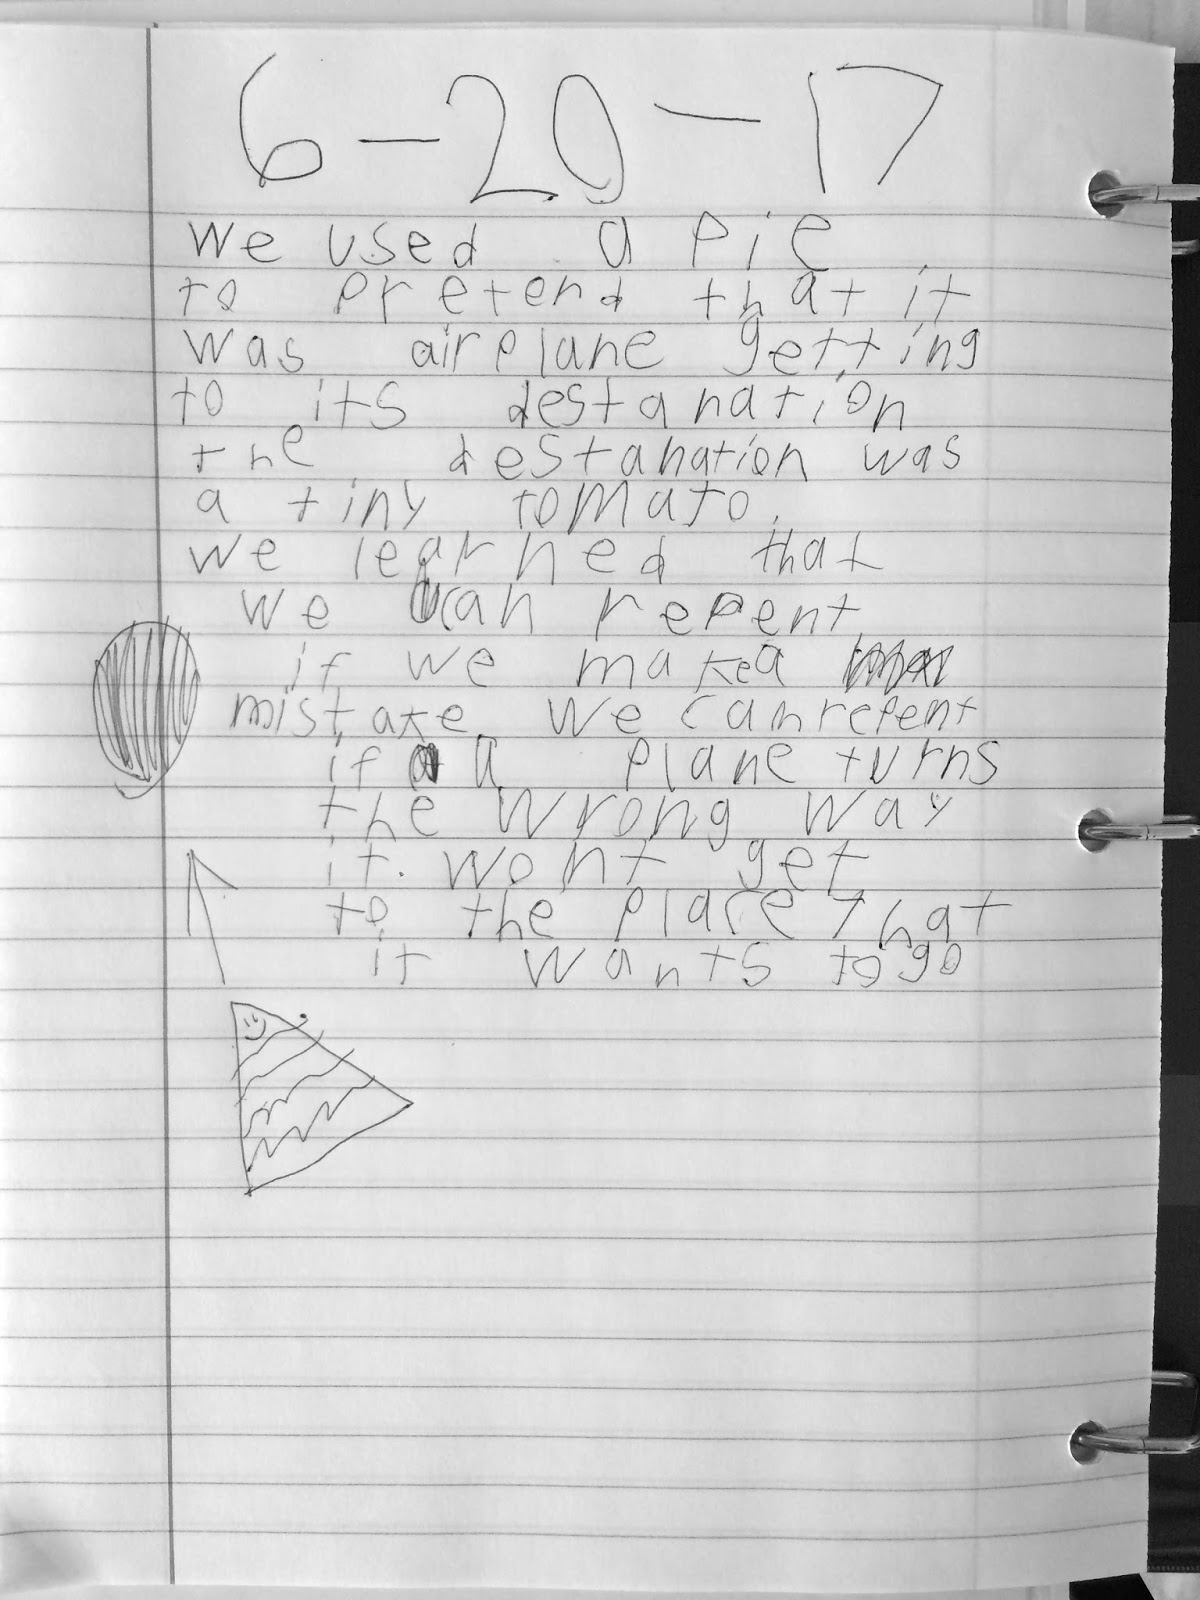 6-20-17
we used a pie
to pretend that it
was airplane getting
to its destanation
the destanation was
a tiny tomato.
we learned that
we can repent
if we make a
mistake we can repent
if a plane turns
the wrong way
it wont get
to the place that
it wants to go